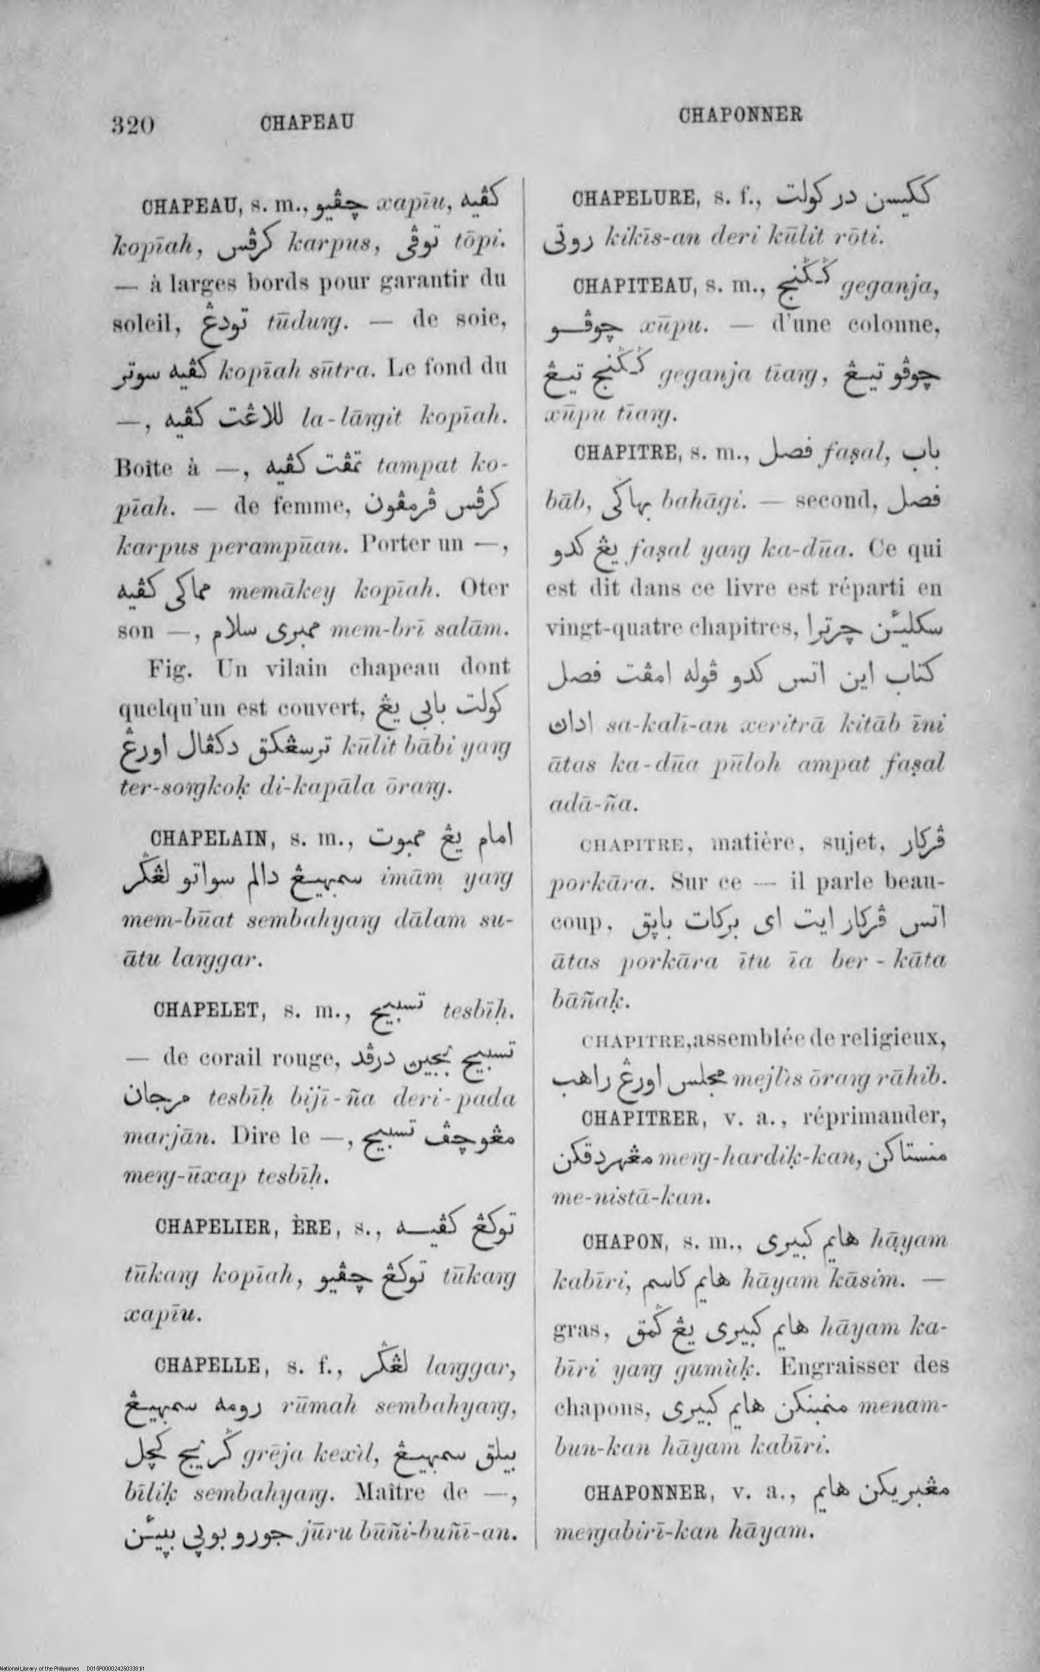 320 CHAPEAU
CHAPONNER
CHAPEAU, s. m., چڤيو xapīu, كڤيه
kopīah, كرڤس karpus, توڤي tōpi.
— à larges bords pour garantir du
soleil, تودڠ tūdurg. — de soie,
كڤيه سوتر kopīah sūtra. Le fond du
—, للاڠت كڤيه la-lārgit kopīah.
Boîte à —, تمڤت كڤيه tampat ko-
pīah. — de femme, كرڤس ڤرمڤون
karpus perampūan. Porter un —,
مماكي كڤيه memākey kopīah. Oter
son —, ممبري سلام mem-brī salām.
Fig. Un vilain chapeau dont
quelqu'un est couvert, كولت بابي يڠ
ترسڠكق دكڤال اورڠ kūlit bābi yarg
ter-sorgkoḳ di-kapāla ōrarg.
CHAPELAIN, s. m., امام يڠ ممبوت
سمبهيڠ دالم سواتو لڠڬر imām yarg
mem-būat sembahyarg dālam su-
ātu larggar.
CHAPELET, s. m., تسبيح tesbīḥ.
— de corail rouge, تسبيح بجين درڤد
مرجان tesbīḥ bijī-ña deri-pada
marjān. Dire le —, مڠوچڤ تسبيح
merg-ūxap tesbīḥ.
CHAPELIER, ÈRE, s., توكڠ كڤيه
tūkarg kopīah, توكڠ چڤيو tūkarg
xapīu.
CHAPELLE, s. f., لڠڬر larggar,
رومه سمبهيڠ rūmah sembahyarg,
ڬريج كچل grēja kexìl, بيلق سمبهيڠ
bīliḳ sembahyarg. Maître de —,
جورو بوڽي بڽيئن jūru būñi-buñī-an.
CHAPELURE, s. f., ككيسن در كولت
روتي kikīs-an deri kūlit rōti.
CHAPITEAU, s. m., ڬڬنج geganja,
چوڤو xūpu. — d'une colonne,
ڬڬنج تيڠ geganja tīarg, چوڤو تيڠ
xūpu tīarg.
CHAPITRE, s. m., فصل faṣal, باب
bāb, بهاڬي bahāgi. — second, فصل
يڠ كدو faṣal yarg ka-dūa. Ce qui
est dit dans ce livre est réparti en
vingt-quatre chapitres, سكليئن چرترا
كتاب اين اتس كدو ڤوله امڤت فصل
ادان sa-kalī-an xeritrā kitāb īni
ātas ka-dūa pūloh ampat faṣal
adā-ña.
CHAPITRE, matière, sujet, ڤركار
porkāra. Sur ce — il parle beau-
coup, اتس ڤركار ايت اي بركات باڽق
ātas porkāra ītu īa ber-kāta
bāñaḳ.
CHAPITRE, assemblée de religieux,
مجلس اورڠ راهب mejlìs ōrarg rāhib.
CHAPITRER, v. a., réprimander,
مڠهردقكن merg-hardiḳ-kan, منستاكن
me-nistā-kan.
CHAPON, s. m., هايم كبيري hāyam
kabīri, هايم كاسم hāyam kāsim. —
gras, هايم كبيري يڠ ڬمق hāyam ka-
bīri yarg gumùḳ. Engraisser des
chapons, منمبنكن هايم كبيري menam-
bun-kan hāyam kabīri.
CHAPONNER, v. a., مڠبريكن هايم
mergabirī-kan hāyam.
National Library of the Philippines